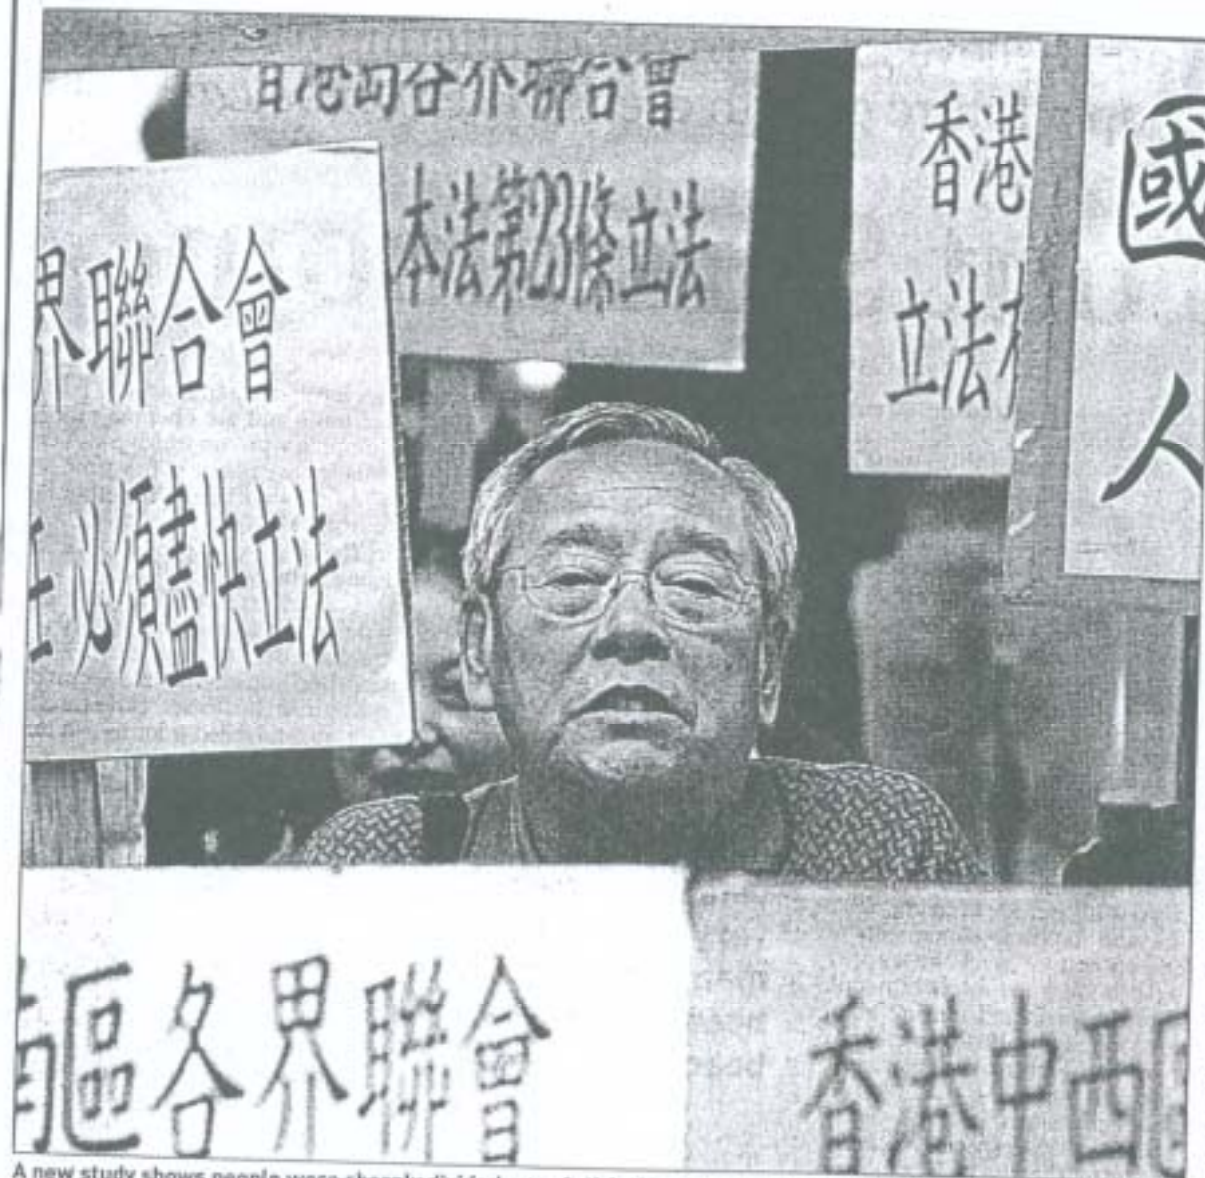 香港南各界聯合會
本法第23條立法
香港
立法
國
人
界聯合會
任 必須盡快立法
南區各界聯會
香港中西區
A new study shows people were sharply divided